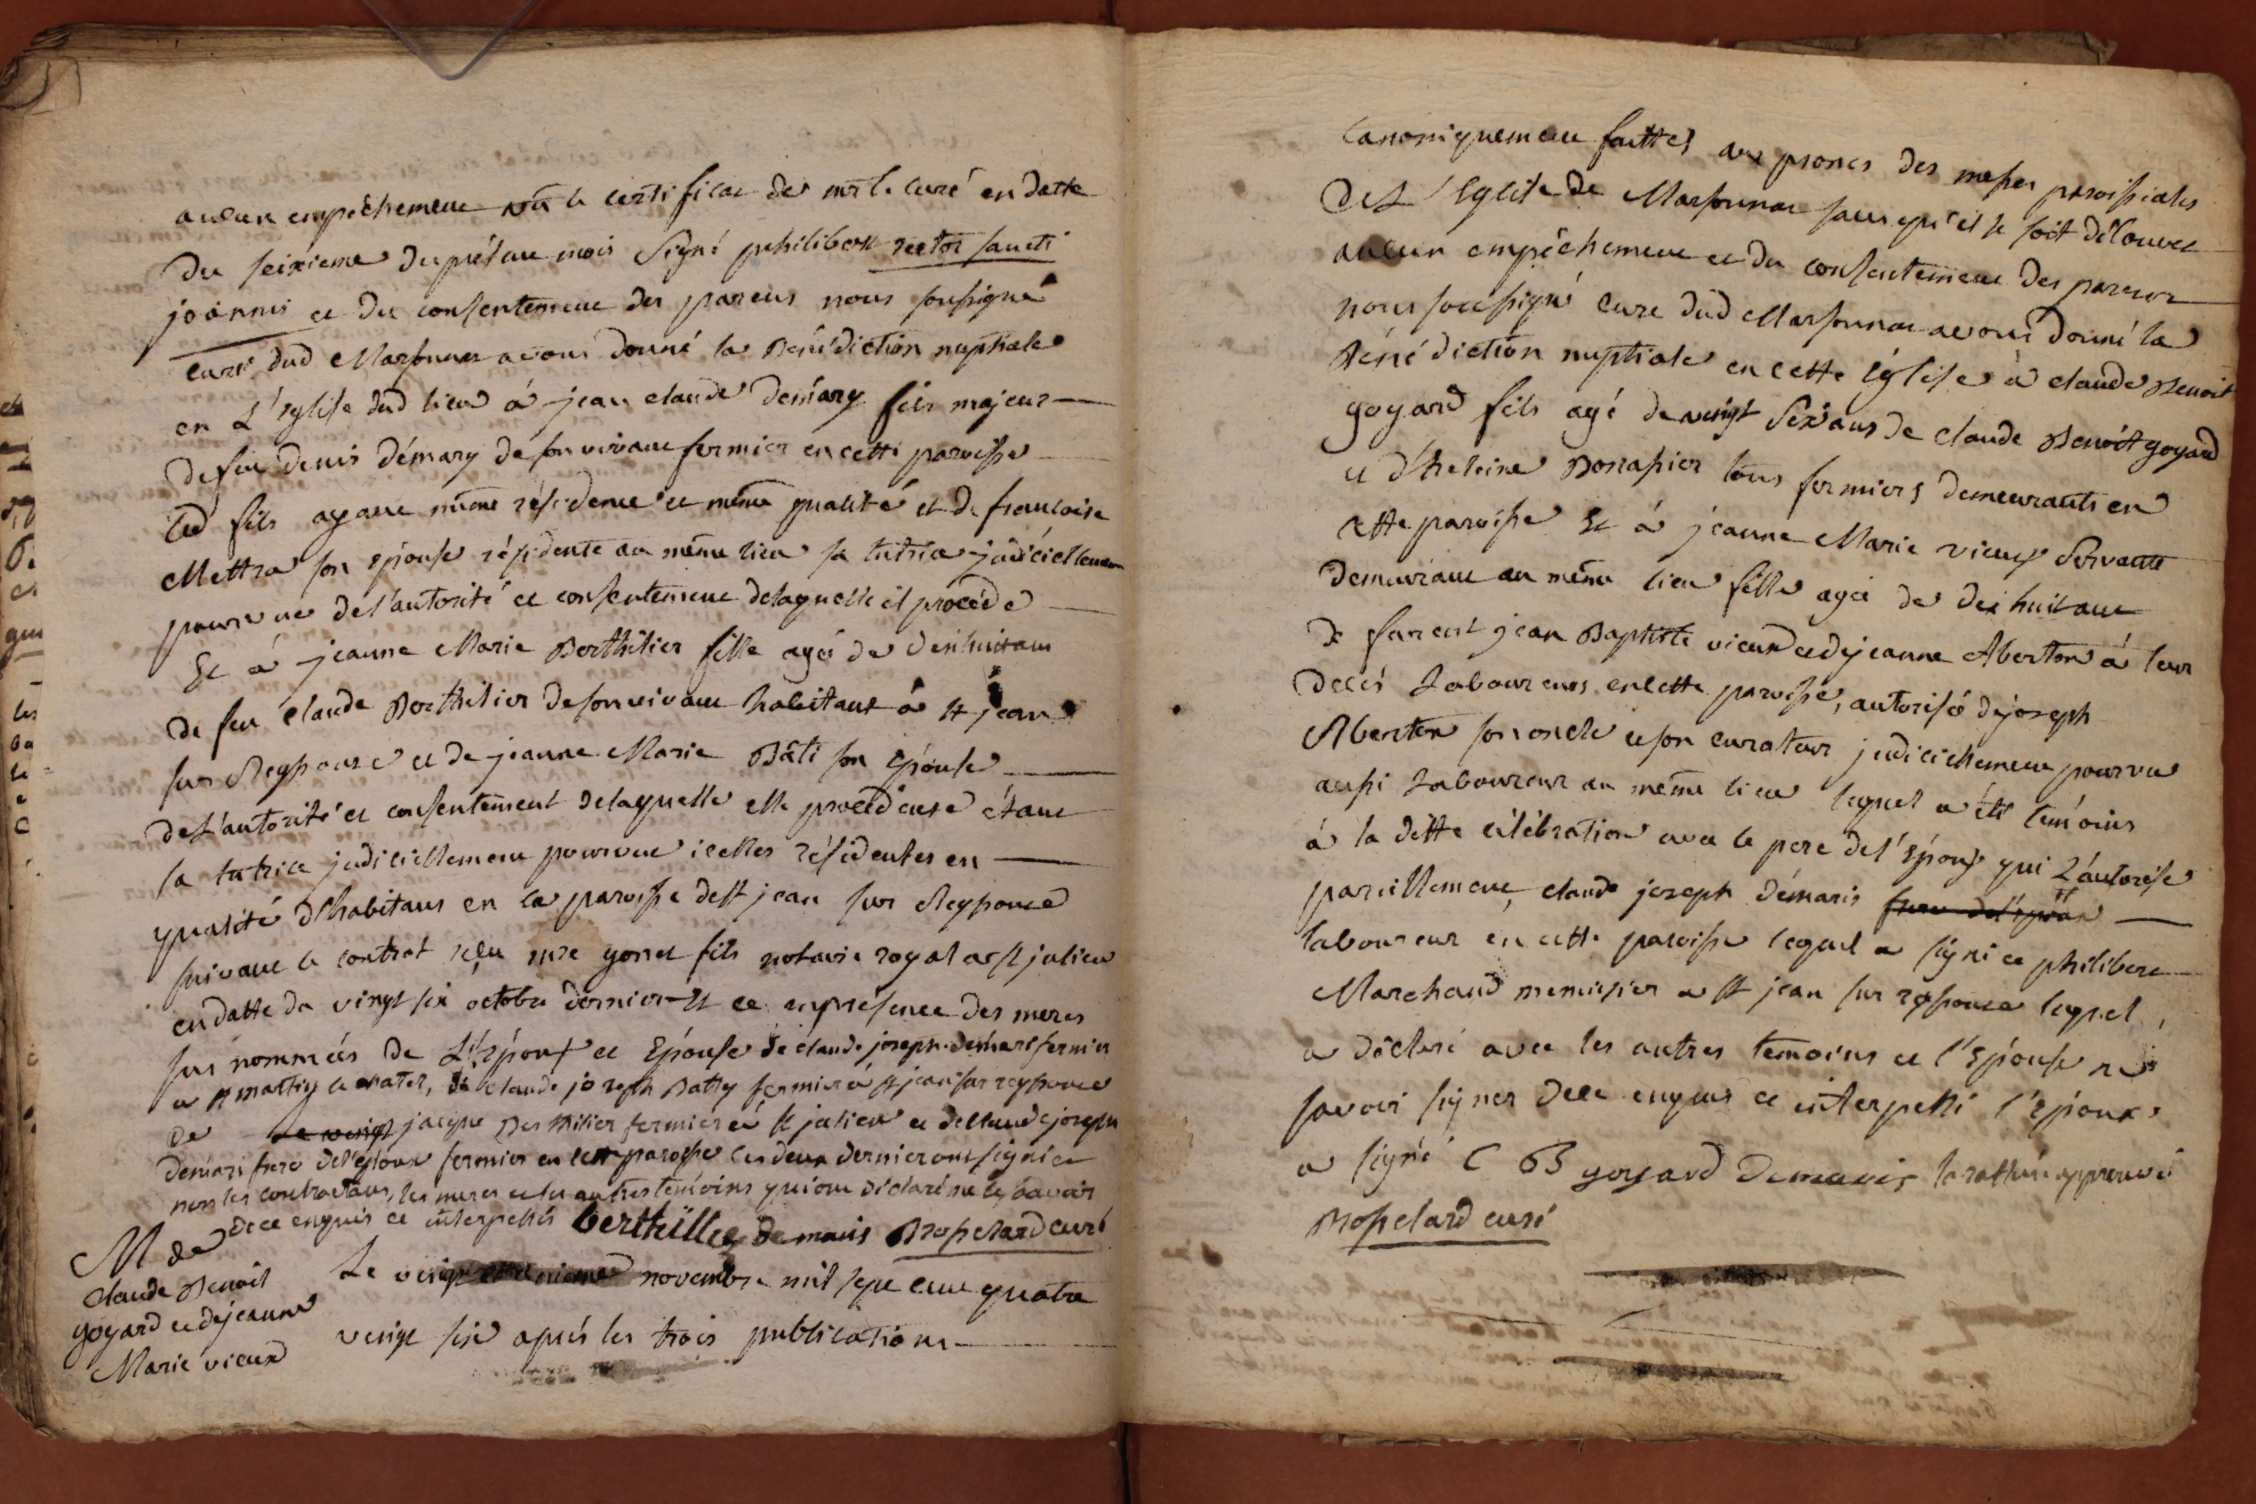 aucun empêchement vû le certificat de mr le curé en datte
du seixieme du présent mois signé philibert rector sancti
joannis et du consentement des parens nous soussigné
curé dud Marsonnas avons donné la Bénédiction nuptiale
en L'Eglise dud lieu à jean claude Demary fils majeur
de feu denis démary de son vivant fermier en cette paroisse
led fils ayant même résidence et même qualité et de francoise
Mettra son epouse résidente au même lieu sa tutrice judiciellement
pourvue de l'autorité et consentement delaquelle il procède
Et à jeanne Marie Berthilier fille agée de dixhuit ans
de feu claude Berthilier de son vivant habitant à st jean
sur Reyssouze et de jeanne Marie Bâti son Epouse
de L'autorité et consentement delaquelle elle procedente étant
sa tutrice judiciellement pourvue icelles résidentes en
qualité d'habitans en la paroisse de st jean sur Reyssouze
suivant le contrat reçu mre gonet fils notaire royal a st julien
en datte du vingt six octobre dernier Et ce en présence des meres
sus nommées de L'Epoux et Epouse de claude joseph demarest fermier
a st martin le chatel, de claude joseph Batty fermier à st jean sur reyssouze
de jacque Berthilier fermier à st julien et de claude joseph
demari frere de l'epoux fermier en cette paroisse les deux derniers ont signé et
non les contractans, les meres et les autres temoins qui ont déclaré ne le savoir
de ce enquis et interpellés berthillier demaris Brosselard curé
M de
claude Benoit
goyard et de jeanne
Marie vieux
Le vingt novembre mil sept cent quatre
vingt six aprés les trois publications
canoniquement faittes aux prones des messes paroissiales
de L'Eglise de Marsonnas sans qu'il se soit découvert
aucun empêchement et du consentement des parens
nous soussigné curé dud Marsonnas avons donné la
Bénédiction nuptiale en cette église à claude Benoit
goyard fils agé de vingt six ans de claude Benoit goyard
et d'heleine Borrassier tous fermiers demeurants en
cette paroisse Et à jeanne Marie vieux servante
demeurant au même lieu fille agée de dix huit ans
de furent jean Baptiste vieux et de jeanne Aberton à leur
décés Laboureurs en cette paroisse, autorisée de joseph
Aberton son oncle et son curateur judiciellement pourvu
aussi Laboureur au même lieu lequel a été témoins
à la ditte célébration avec le pere de l'Epoux qui L'autorise
pareillement, claude joseph démaris frere de l'epoux
laboureur en cette paroisse lequel a signé et philibert
Marchand menuisier a st jean sur reyssouze lequel
a déclaré avec les autres temoins et l'Epouse ne
savoir signer de ce enquis et interpellé l'Epoux
a signé C B goyard Demaris la rature approuvé
Brosselard curé